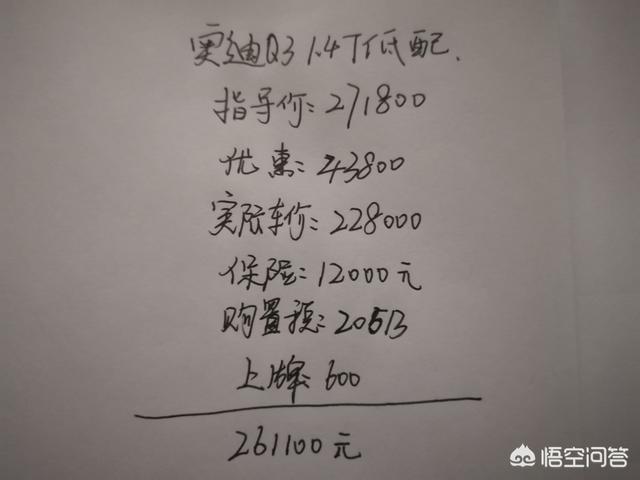 奥迪Q3 1.4T低配.
指导价:271800
优惠:43800
实际车价:228000
保险:12000元
购置税:20513
上牌:600
261100元
悟空问答